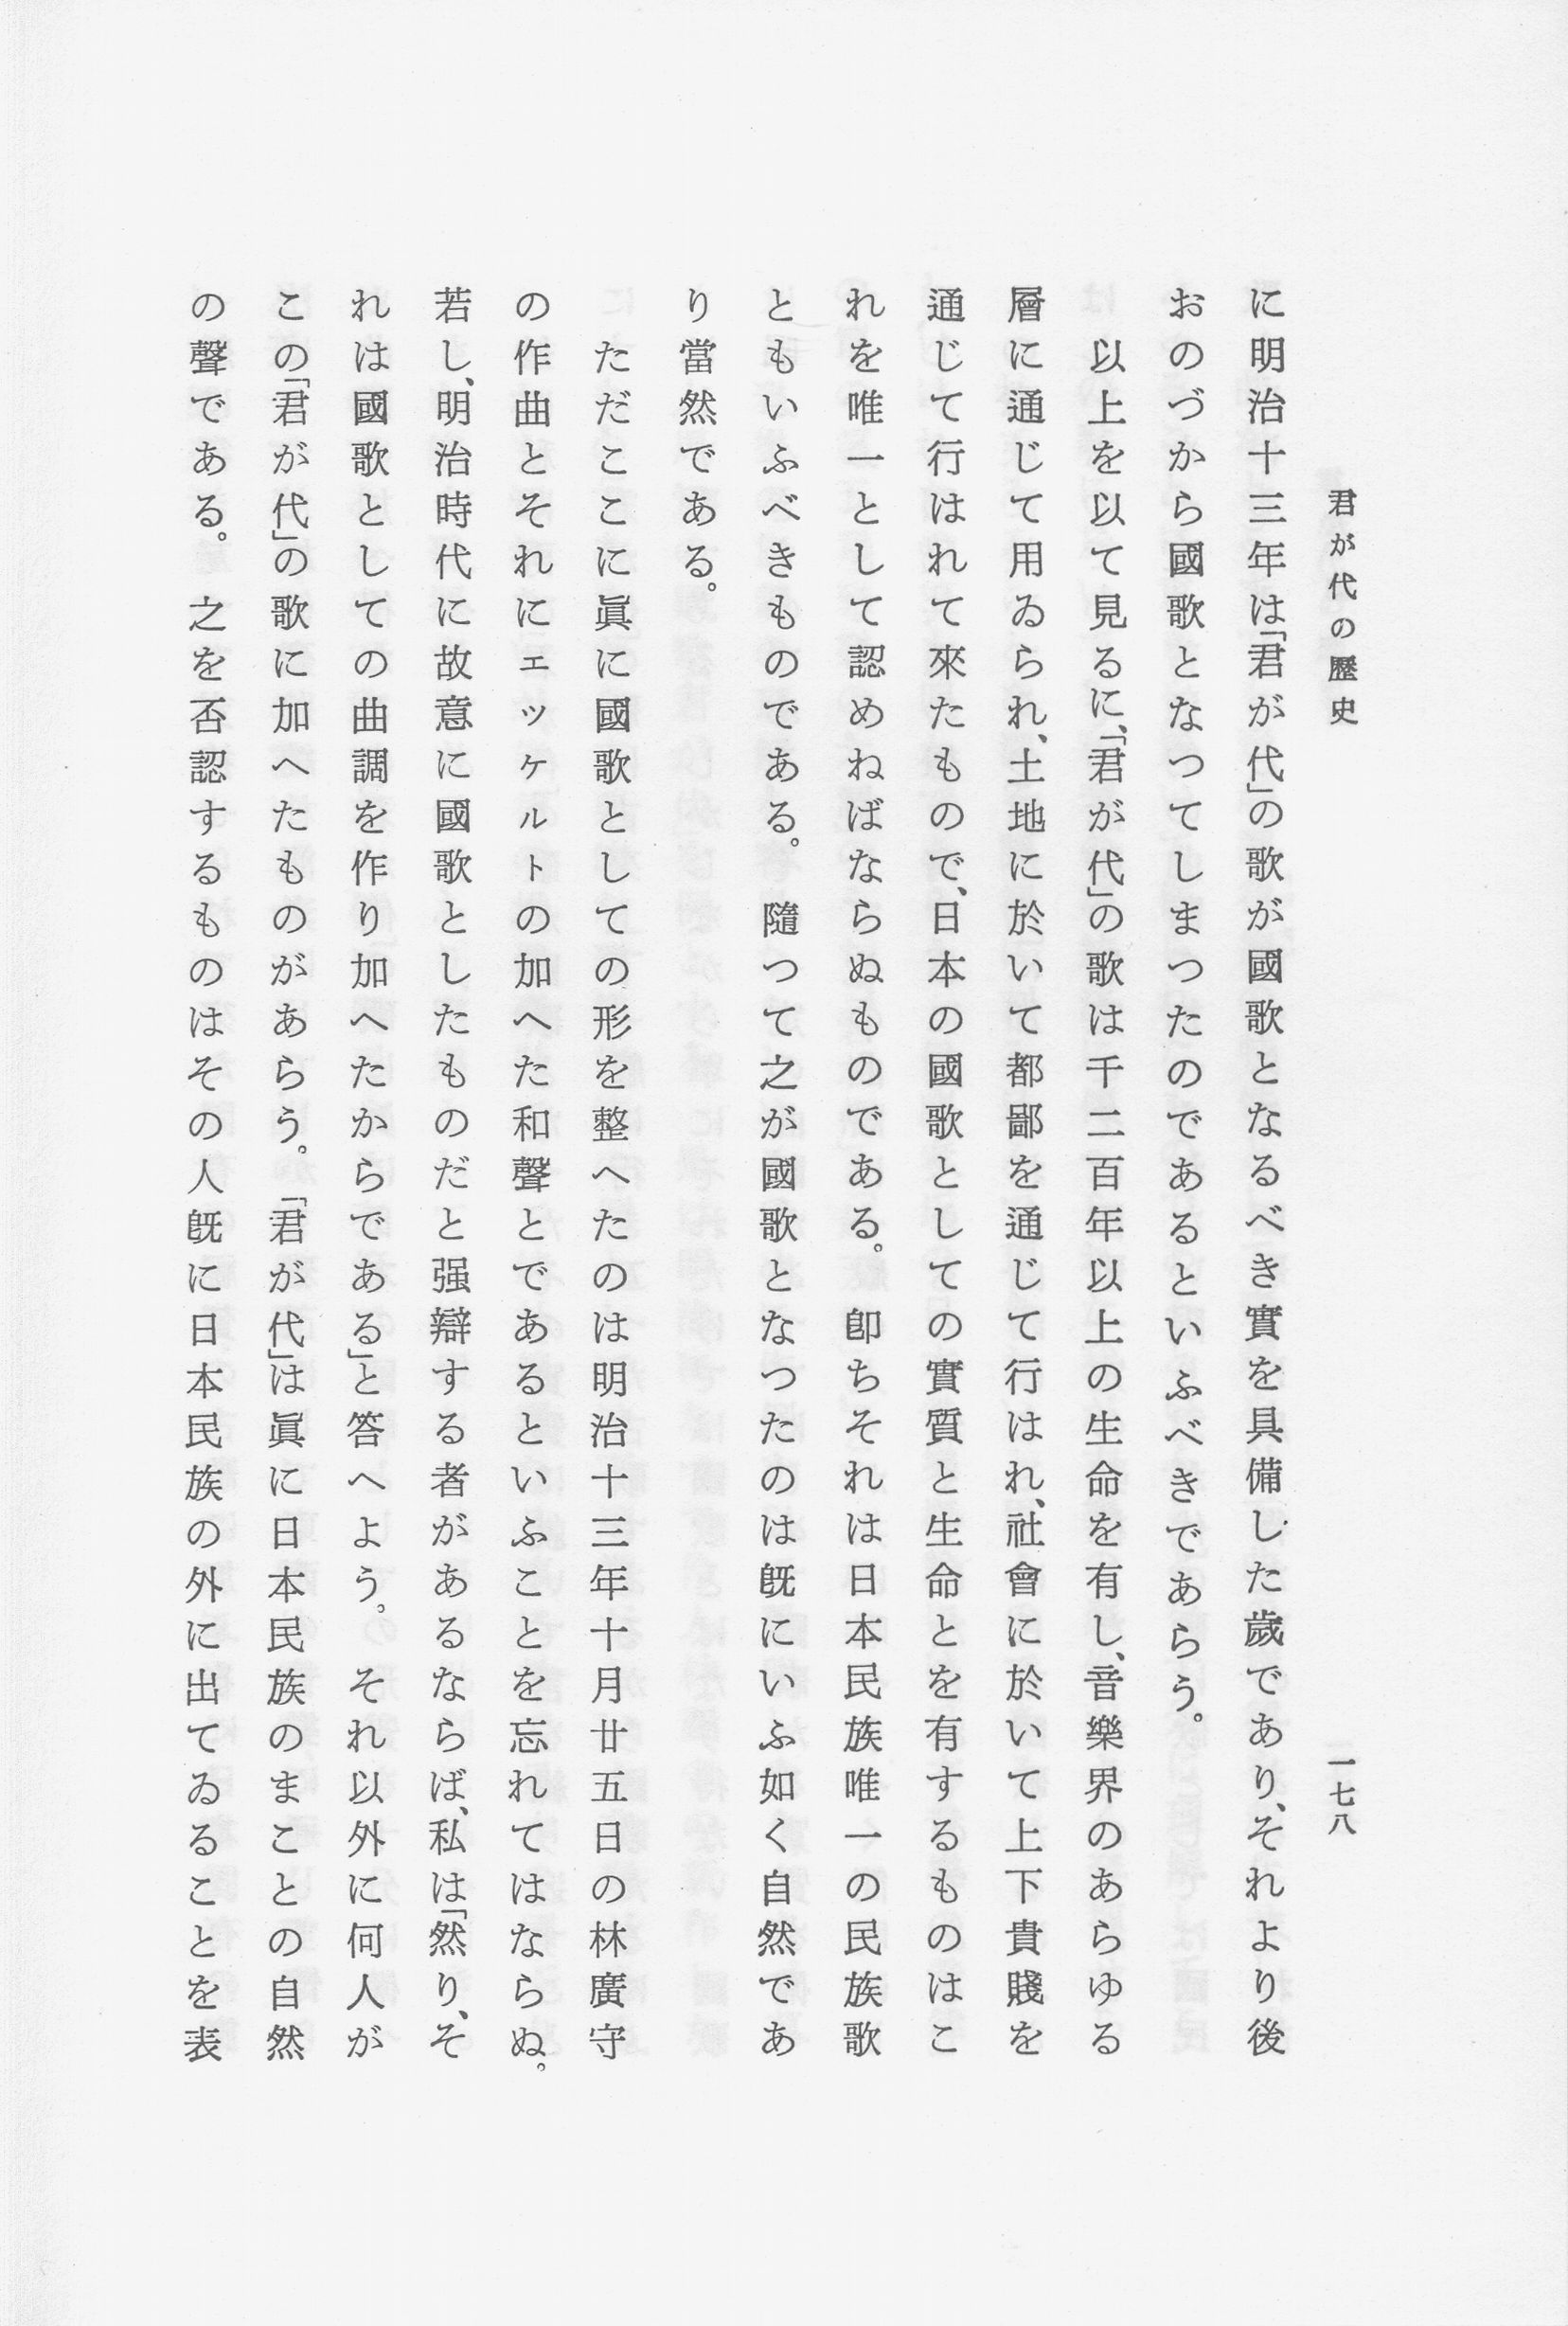 君が代の歷史
一七八
に明治十三年は「君が代」の歌が國歌となるべき實を具備した歲であり、それより後
おのづから國歌となつてしまつたのであるといふべきであらう。
以上を以て見るに、「君が代」の歌は千二百年以上の生命を有し、音樂界のあらゆる
層に通じて用ゐられ、土地に於いて都鄙を通じて行はれ、社會に於いて上下貴賤を
通じて行はれて來たもので、日本の國歌としての實質と生命とを有するものはこ
れを唯一として認めねばならぬものである。卽ちそれは日本民族唯一の民族歌
ともいふべきものである。隨つて之が國歌となつたのは旣にいふ如く自然であ
り當然である。
ただここに眞に國歌としての形を整へたのは明治十三年十月廿五日の林廣守
の作曲とそれにエッケルトの加へた和聲とであるといふことを忘れてはならぬ。
若し、明治時代に故意に國歌としたものだと强辯する者があるならば、私は「然り、そ
れは國歌としての曲調を作り加へたからである」と答へよう。それ以外に何人が
この「君が代」の歌に加へたものがあらう。「君が代」は眞に日本民族のまことの自然
の聲である。之を否認するものはその人旣に日本民族の外に出てゐることを表